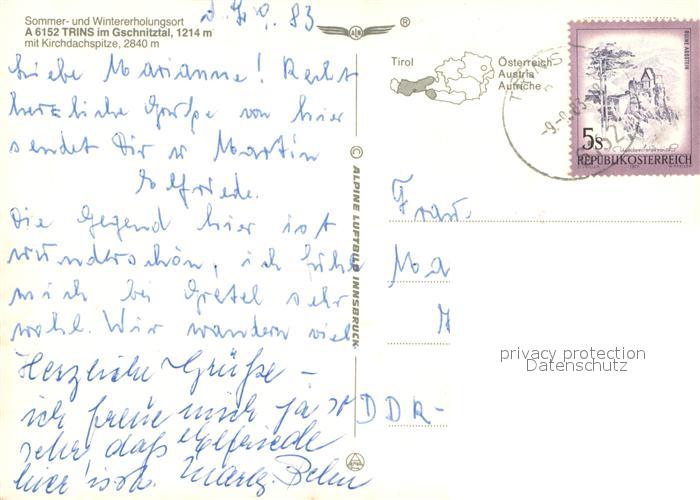 Sommer- und Wintererholungsort
A 6152 TRINS im Gschnitztal, 1214 m
mit Kirchdachspitze, 2840 m
9. 83
Liebe Marianne! Recht
herzliche Grüße von hier
sendet Dir u Martin
Elfriede.
Die Gegend hier ist
wunderschön, ich fühle
mich bei Gretel sehr
wohl. Wir wandern viel
Herzliche Grüße –
ich freue mich ja so
sehr, daß Elfriede
hier ist.
© ALPINE LUFTBILD INNSBRUCK
®
Tirol
Österreich
Austria
Autriche
RUINE AGGSTEIN
5s
REPUBLIK ÖSTERREICH
Frau
Ma
DDR-
privacy protection
Datenschutz